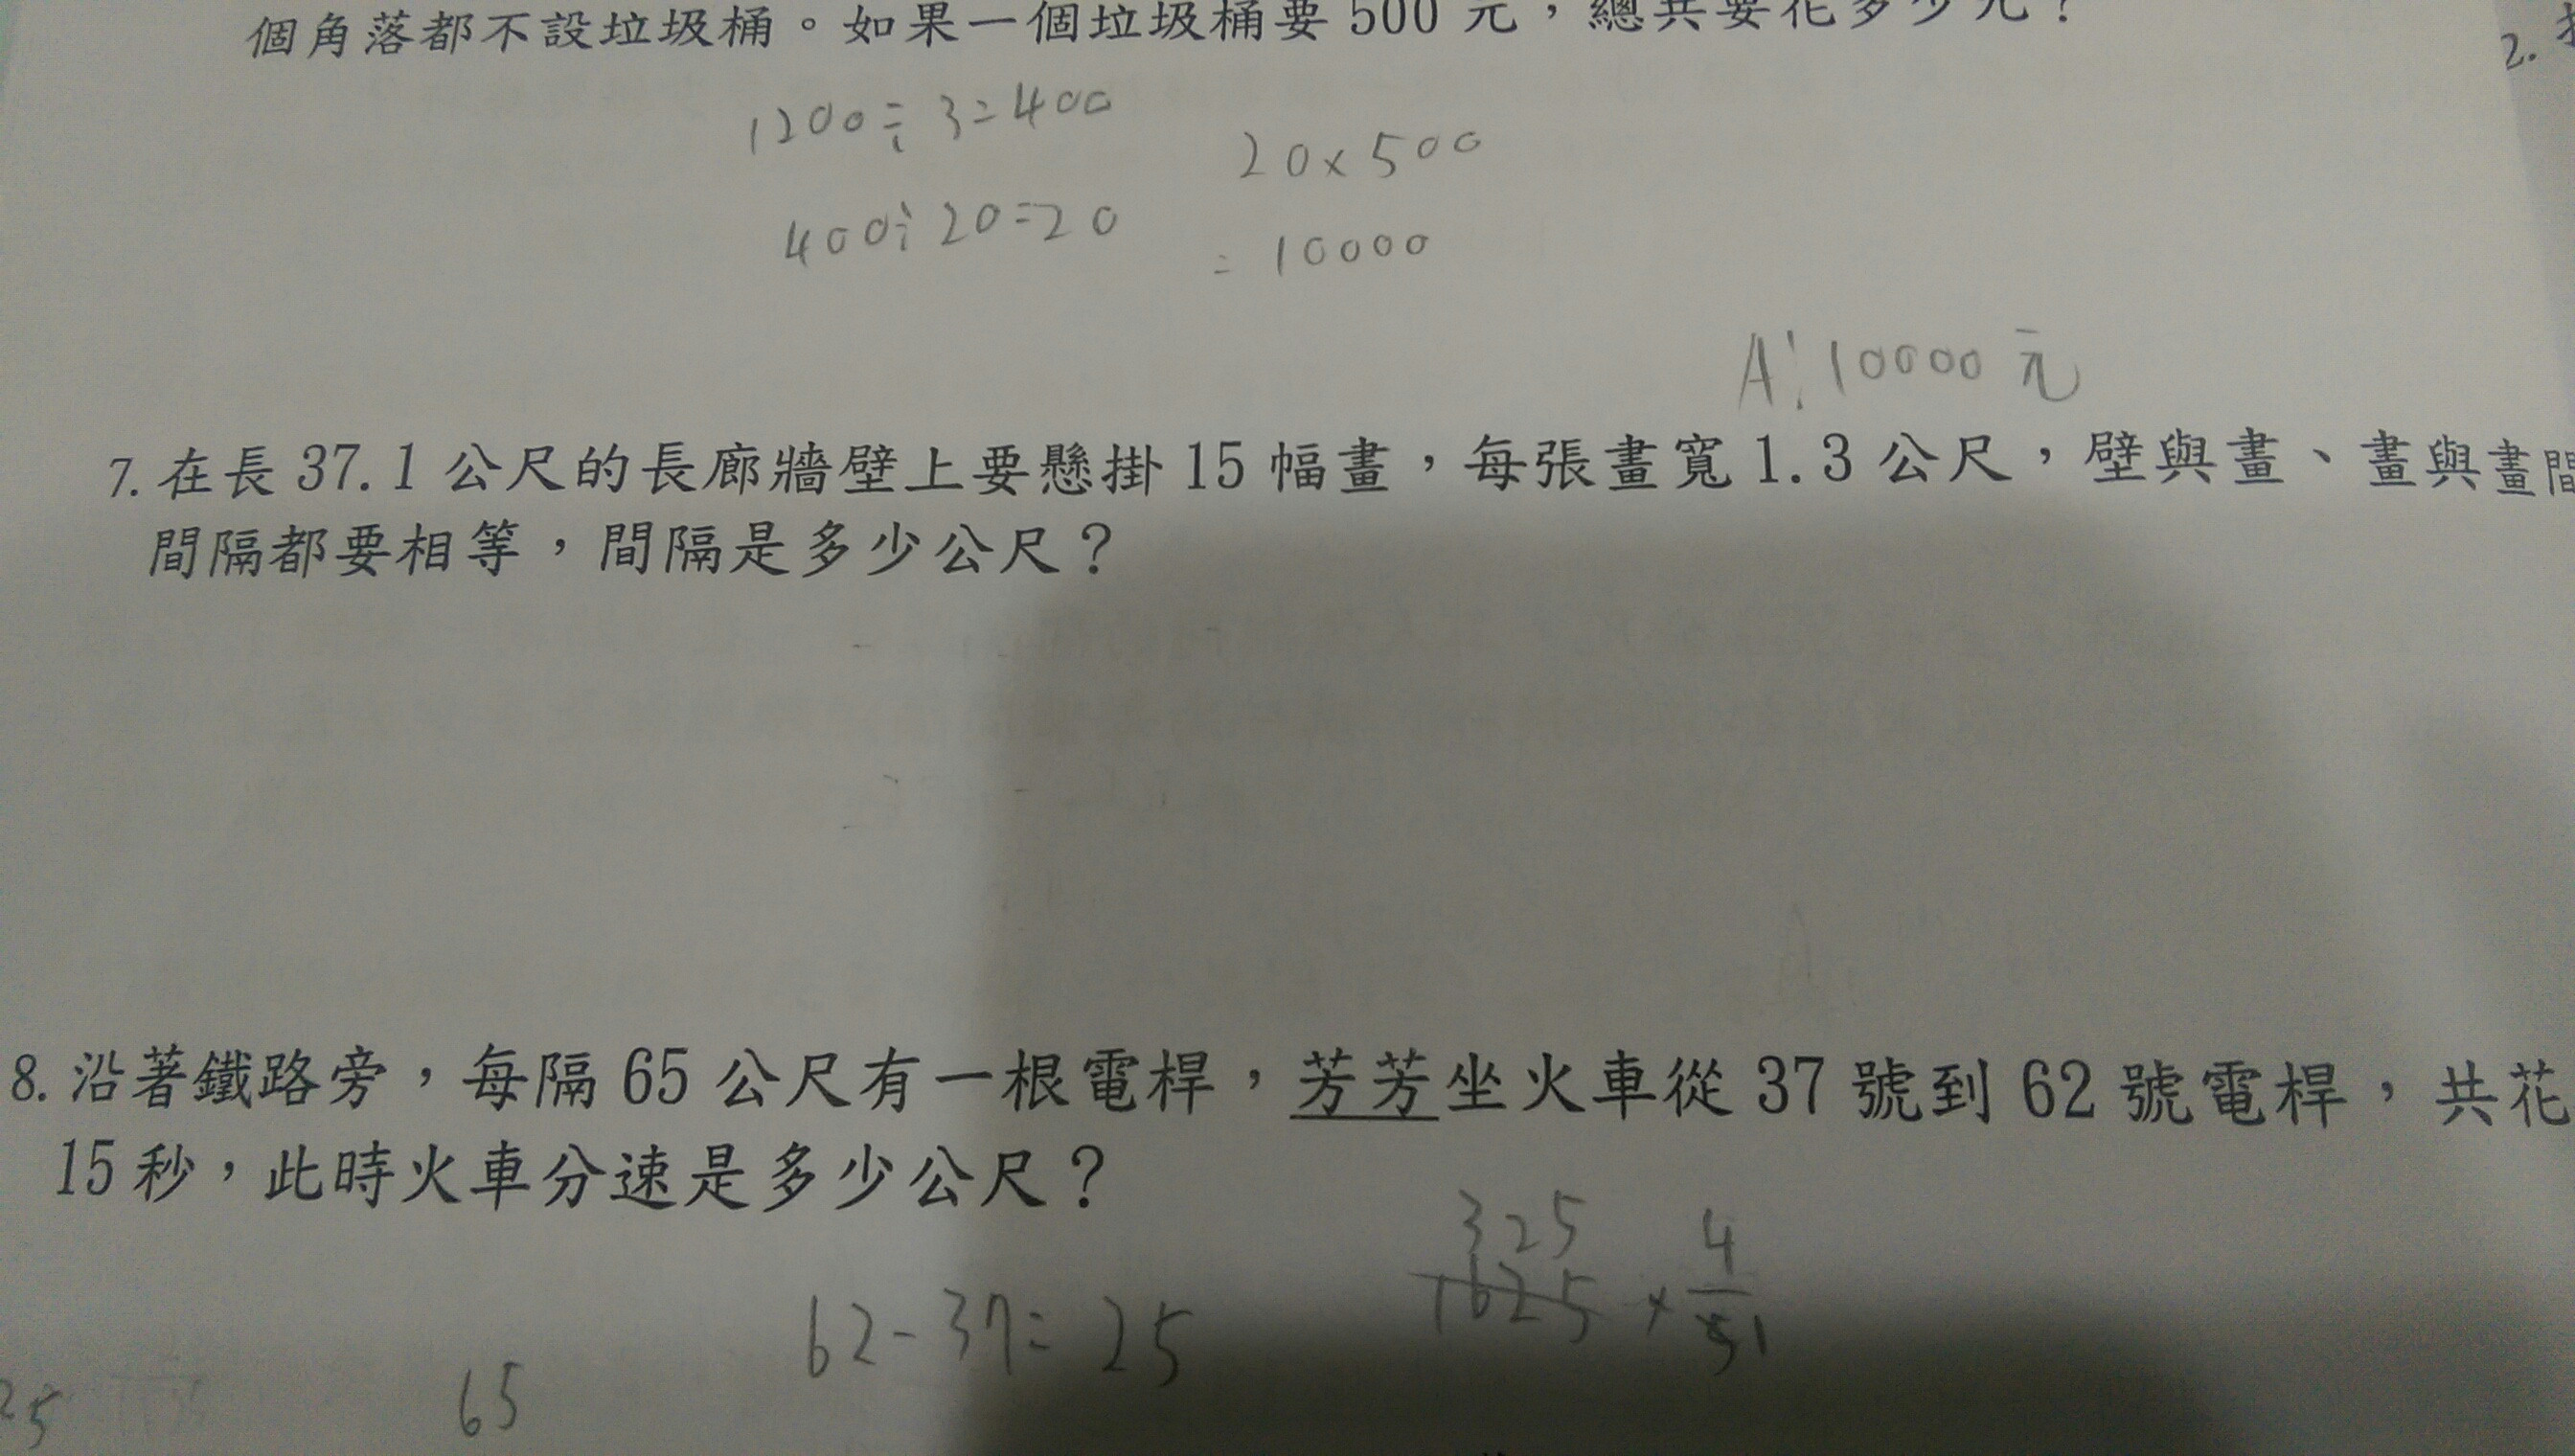 個角落都不設垃圾桶。如果一個垃圾桶要 500 元,總共要花多少元?
2.
1200÷3=400
20×500
400÷20=20
=10000
A:10000元
7. 在長 37.1 公尺的長廊牆壁上要懸掛 15 幅畫,每張畫寬 1.3 公尺,壁與畫、畫與畫間
間隔都要相等,間隔是多少公尺?
8. 沿著鐵路旁,每隔 65 公尺有一根電桿,芳芳坐火車從 37 號到 62 號電桿,共花
15 秒,此時火車分速是多少公尺?
325 4
1625 × 51
62-37=25
65
25